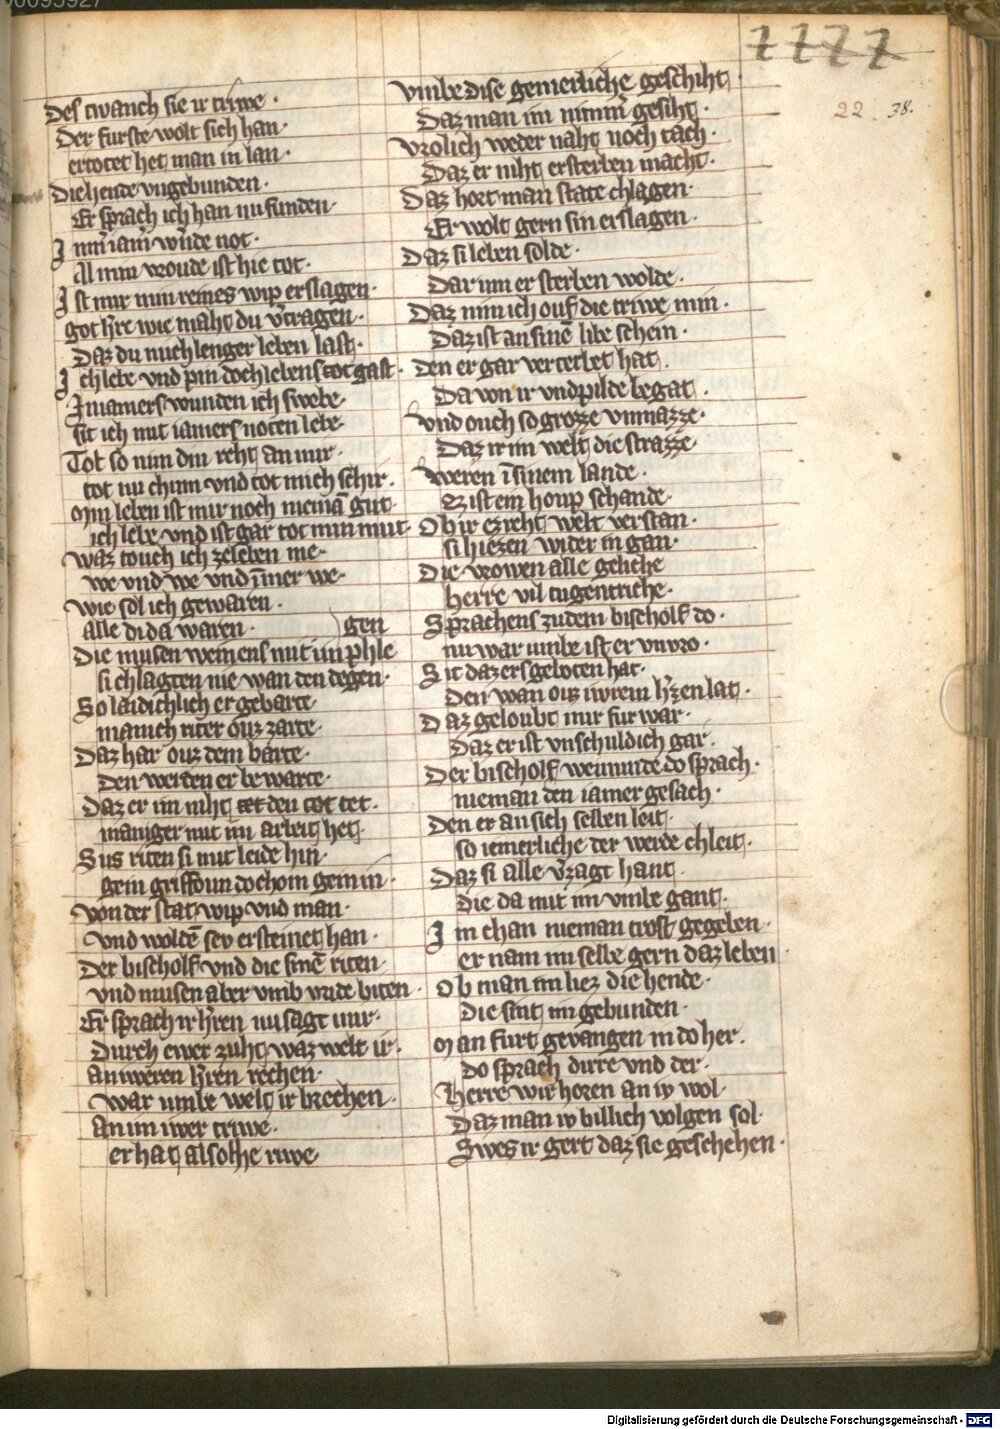 Des twanch sie ir triwe ·
Der furste wolt sich han ·
ertotet het man in lan ·
Die hende vngebunden ·
Er sprach ich han nu funden ·
I nm̄ iam̄ wn̄de not ·
Al min vroude ist hie tot ·
I st mir min reines wip erslagen ·
got hr̄re wie maht du v̄tragen ·
Daz du mich lenger leben last ·
I ch lebe vnd pin doch lebens tot gast ·
In iamers wunden ich swebe ·
sit ich mit iamers noten lebe ·
Tot so nim din reht an mir ·
tot nu chum vnd tot mich schir ·
Min leben ist mir noch niemā gut ·
ich lebe vnd ist gar tot min mut ·
Waz touch ich zeleben me ·
we vnd we vnd īmer we ·
wie sol ich gewaren ·
alle di da waren · gen
Die musen weinens mit im phle
si chlagten nie wan den degen ·
So laidichlich er gebarte ·
manich riter ouz zarte ·
Daz har ouz dem barte ·
Den werden er bewarte ·
Daz er im niht tet den tot tet ·
maniger mit im arbeit het ·
Sus riten si mit leide hin ·
gein griffoun do chom gein in ·
Von der stat wip vnd man ·
Vnd woldē sev ersteinet han ·
Der bischolf vnd die sinē riten ·
vnd musen aber vmb vride biten ·
Er sprach ir hr̄ren nu sagt mir ·
Durch ewer zuht waz welt ir ·
an iweren hr̄ren rechen ·
war umbe welt ir brechen ·
an im iwer triwe ·
er hat alsolhe riwe
Vmbe dise gemerliche geschiht ·
Daz man in nimm̄ gesiht ·
Vrolich weder naht noch tach ·
Daz er niht ersterben macht ·
Daz hort man state chlagen ·
Er wolt gern sin erslagen ·
Daz si leben solde ·
Dar um er sterben wolde ·
Daz nim ich ouf die triwe min ·
Daz ist an sinē libe schein ·
Den er gar verterbet hat ·
Da von ir vnd pilde begat ·
Vnd ouch so grozze vnmazze ·
Daz ir im welt die strazze ·
Weren ī sinem lande ·
Ez ist ein houp schande ·
Ob ir ez reht welt verstan ·
si hiezen wider in gan ·
Die vrowen alle geliche
herre vil tugentriche ·
Sprachens zu dem bischolf do ·
nu war umbe ist er vnvro ·
Sit daz ers geboten hat ·
Den wan ouz iwrem hr̄zen lat ·
Daz geloubt mir fur war ·
Daz er ist vnschuldich gar ·
Der bischolf weinunde do sprach ·
nieman den iamer gesach ·
Den er an sich selben leit ·
so iemerliche der werde chleit ·
Daz si alle v̄zagt hant ·
die da mit im vmbe gant ·
I m chan nieman trost gegeben ·
er nam im selbe gern daz leben ·
Ob man im liez die hende ·
Die sint im gebunden ·
Man furt gevangen in do her ·
do sprach dirre vnd der ·
Herre wir horen an iv wol ·
Daz man iv billich volgen sol ·
Swes ir gert daz sie geschehen ·
22. 38.
Digitalisierung gefördert durch die Deutsche Forschungsgemeinschaft - DFG